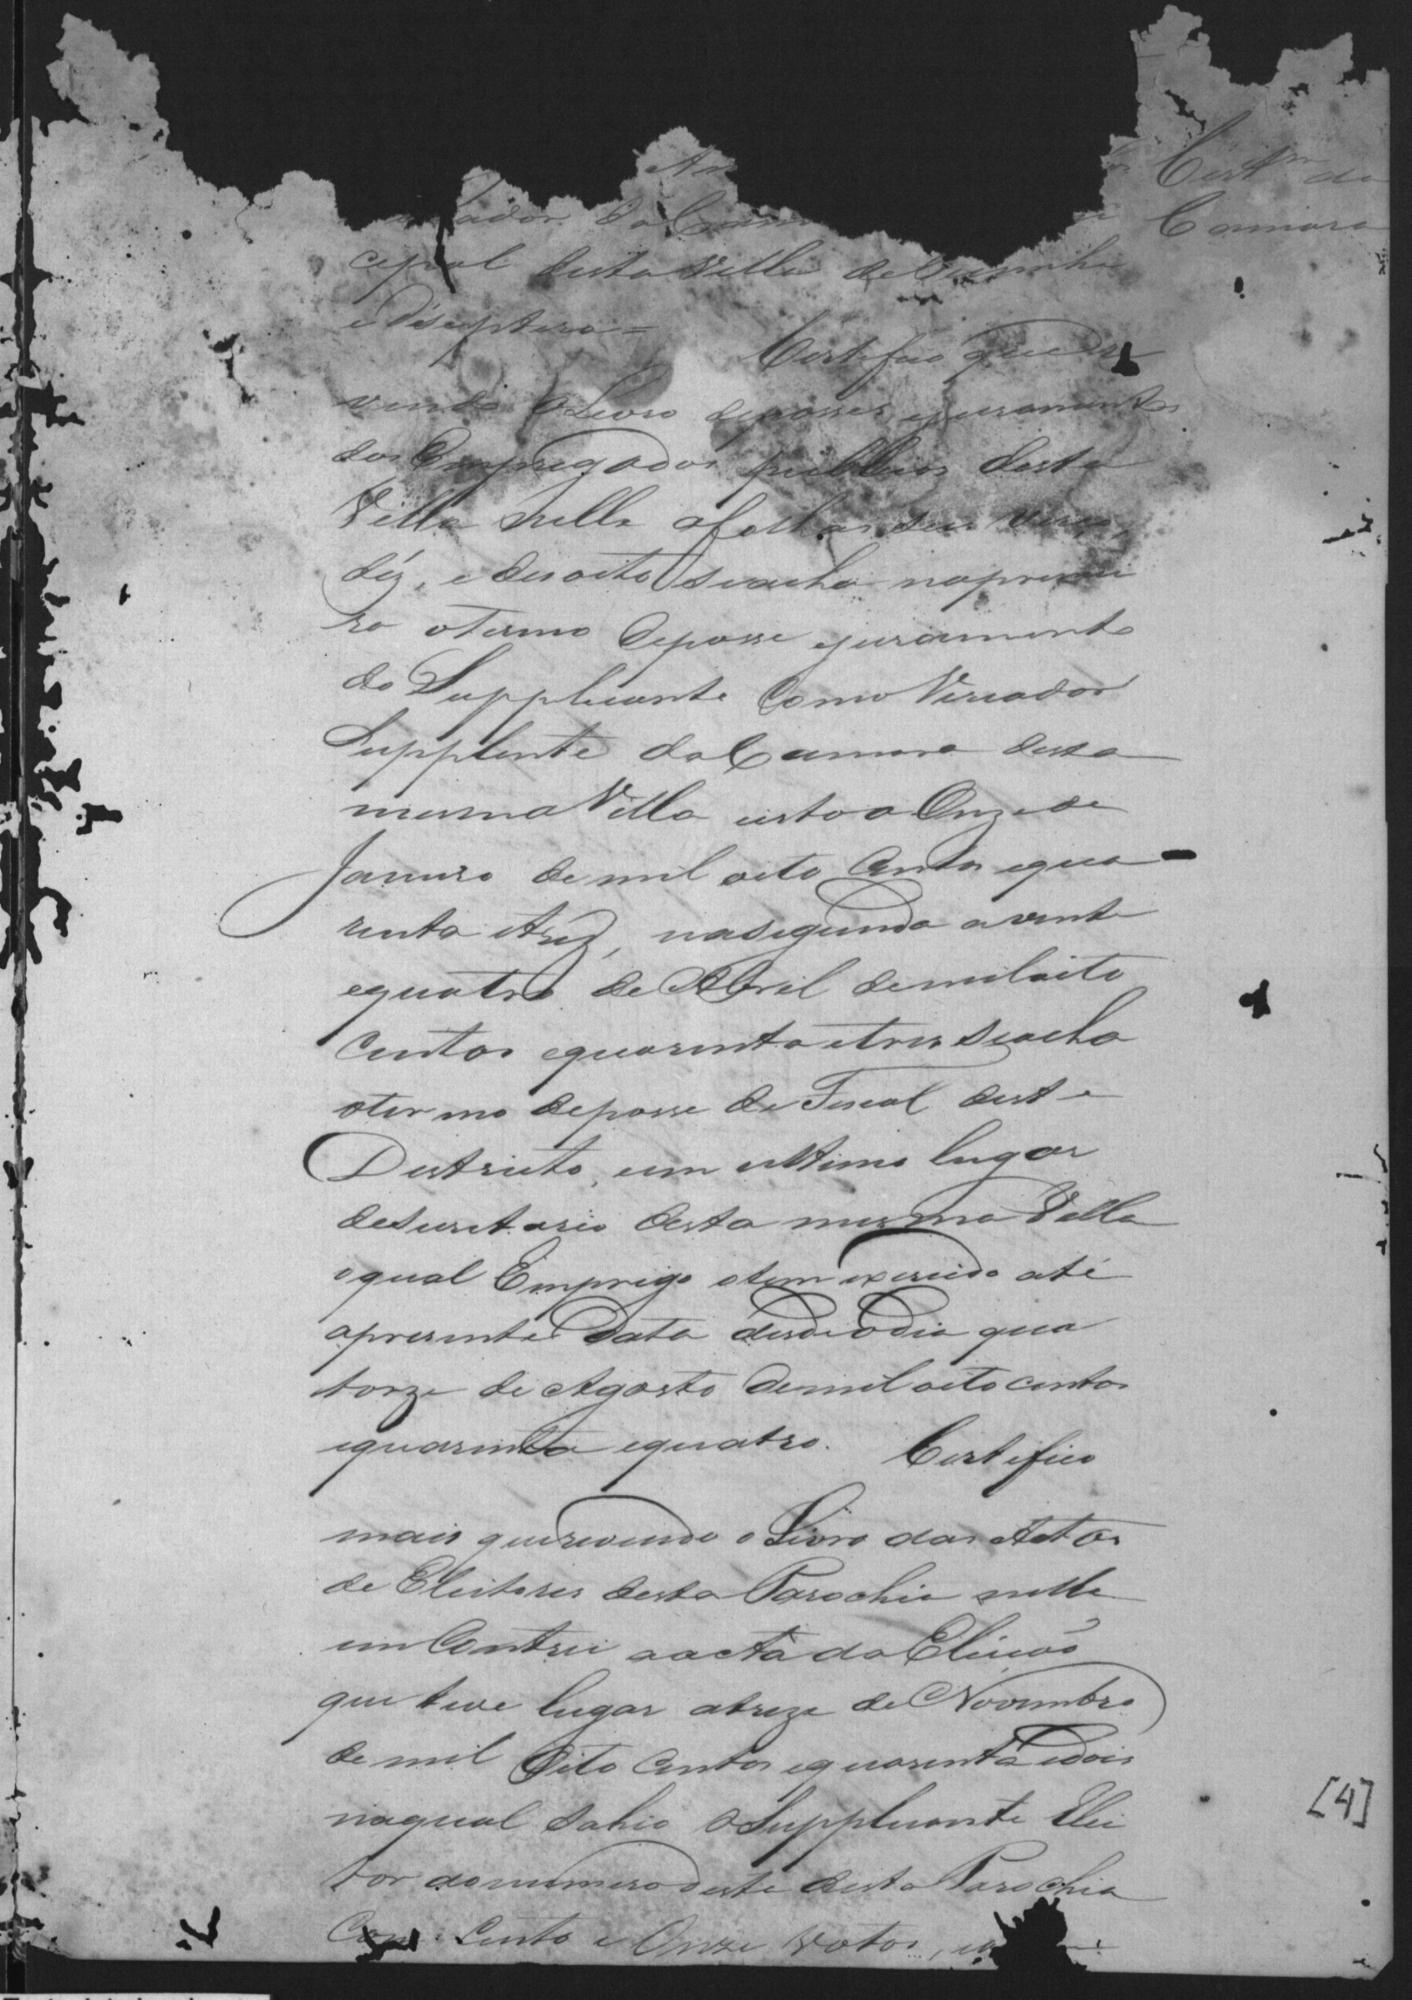 Cert.am da
da Camara
cipal desta Villa de
e Diseptero =
Certifico que re
vendo o Livro deposses ejuramentos
dos Empregados publicos desta
Villa nelle afolhas seis verso,
déz, e desoito seacha naprimei
ra otermo deposse ejuramento
do Supplicante Como Veriador
Supplente da Camara desta
mesma Villa isto a Onze de
Janeiro de mil oito Centos equa
renta etrez, nasegunda avinte
equatro de Abril demil oito
Centos equarenta etres seacha
otermo deposse de Fiscal deste
Destricto, eem ultimo lugar
deSecretario desta mesma Villa
oqual Emprigo otem exercido até
apresente Data desde odia qua
torze de Agosto demil oito centos
equarenta equatro. Certifico
mais que revendo o Livro das Actas
de Eleitores desta Parochia nelle
emContrei aacta da Eleicaõ
que teve lugar atreze de Novembro
de mil Oito Centos equarenta edois
naqual sahio oSupplicante Elei
tor donumero deste desta Parochia
Com Cento e Onze votos,
[4]